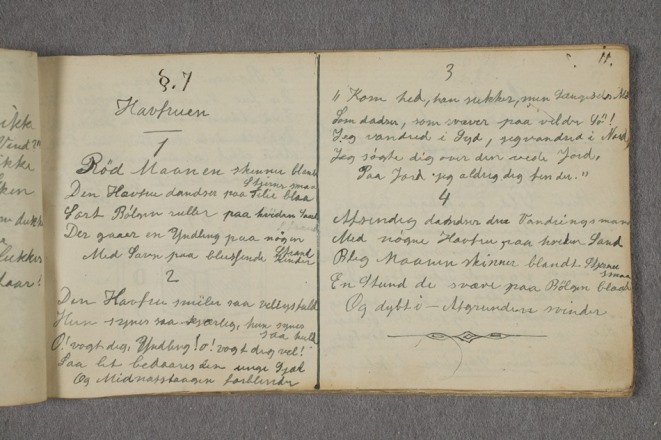 §. 7
Havfruen
1
Röd Maanen skinner blandt
Stjerner smaa
Den Havfru dandser paa Sölje blaa
Sort Bölgen ruller paa hviden Sand
Der gaaer en Yndling paa nögen
Strand
Med Savn paa blussende Kinder
2
Den Havfru smiler saa vellystfuld
Hun synes saa kjærlig, hun synes
saa huld
O! vogt dig, Yndling! O! vogt dig vel!
Saa let bedaares den unge Sjæl
Og Midnatstaagen forblinder
11.
3
"Kom hid, han sukker, min Længsels
Som daarer, som svæver paa vilden Sö!
Jeg vandred i Syd, jeg vandred i Nord,
Jeg sögte dig over den vide Jord,
Paa Jord jeg aldrig dig finder."
4
Afsindig daarer den Vandringsmand
Med nögne Havfru paa hviden Sand
Bleg Maanen skinner blandt Stjerner
smaa
En Stund de svæve paa Bölgen blaa
Og dybt i Afgrunden svinder
ikke
ikke